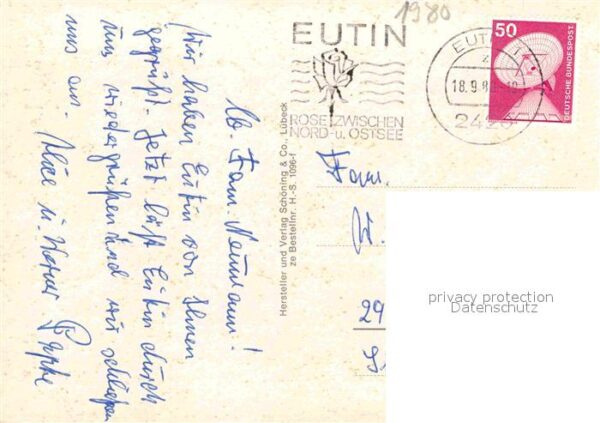 1980
EUTIN
ROSE ZWISCHEN
NORD- u. OSTSEE
EUTIN 1
18.9.8
2420
50
DEUTSCHE BUNDESPOST
Lb. Fam. Neumann!
Wir haben Eutin von Ihnen
gegrüßt. Jetzt läßt Eutin durch
uns wiedergrüßen und wir schließen
uns an. Alice u. Werner
Hersteller und Verlag Schöning & Co., Lübeck
ze Bestellnr. H.-S. 1096-f
Fam.
29
privacy protection
Datenschutz